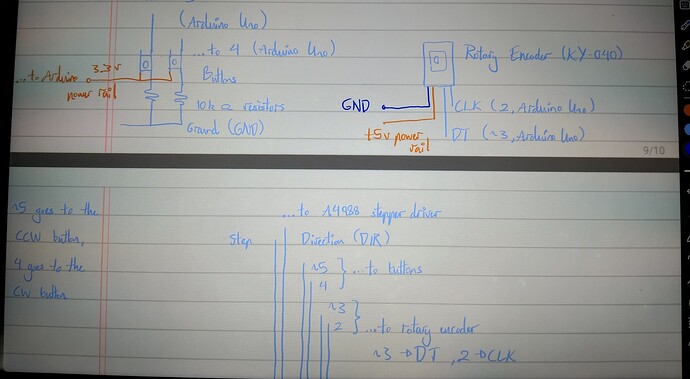 (Arduino Uno)
...to 4 (Arduino Uno)
3.3v
...to Arduino
power rail
Buttons
10k Ω resistors
Ground (GND)
Rotary Encoder (KY-040)
GND
+5v power
rail
CLK (2, Arduino Uno)
DT (~3, Arduino Uno)
9/10
~5 goes to the
CCW button,
4 goes to the
CW button
...to A4988 stepper driver
Step
Direction (DIR)
~5
4
} ...to buttons
~3
2
} ...to rotary encoder
~3 → DT, 2 → CLK